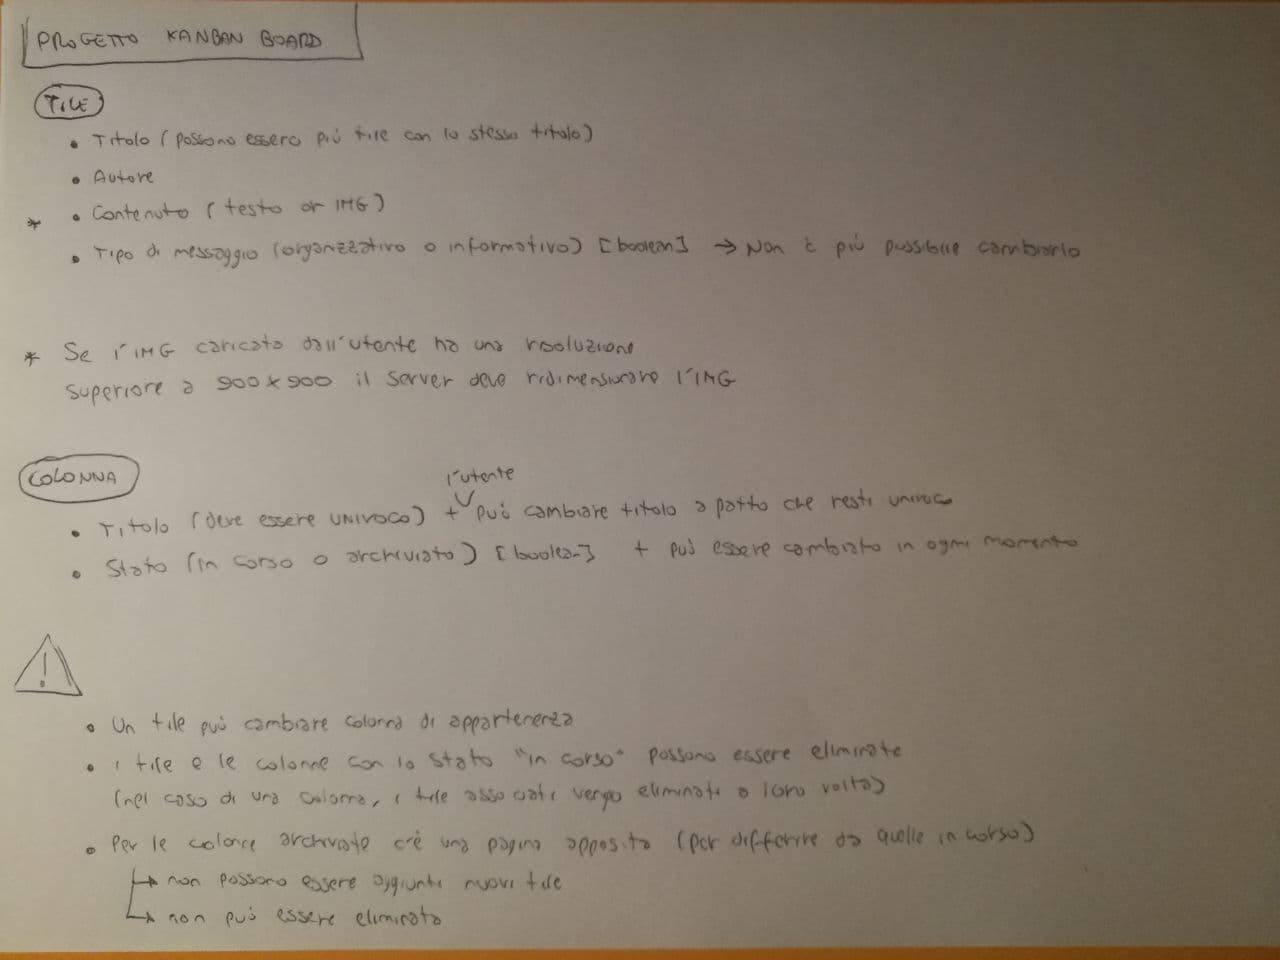 PROGETTO KANBAN BOARD
TILE
• Titolo (possono essere più tile con lo stesso titolo)
• Autore
* • Contenuto (testo or IMG)
• Tipo di messaggio (organizzativo o informativo) [boolean] → Non è più possibile cambiarlo
* Se l'IMG caricata dall'utente ha una risoluzione
superiore a 900x900 il server deve ridimensionare l'IMG
COLONNA
l'utente
• Titolo (deve essere UNIVOCO) + può cambiare titolo a patto che resti univoco
• Stato (in corso o archiviato) [boolean] + può essere cambiato in ogni momento
!
• Un tile può cambiare colonna di appartenenza
• i tile e le colonne con lo stato "in corso" possono essere eliminate
(nel caso di una colonna, i tile associati vengo eliminati a loro volta)
• Per le colonne archiviate c'è una pagina apposita (per differire da quelle in corso)
↳ non possono essere aggiunti nuovi tile
↳ non può essere eliminata